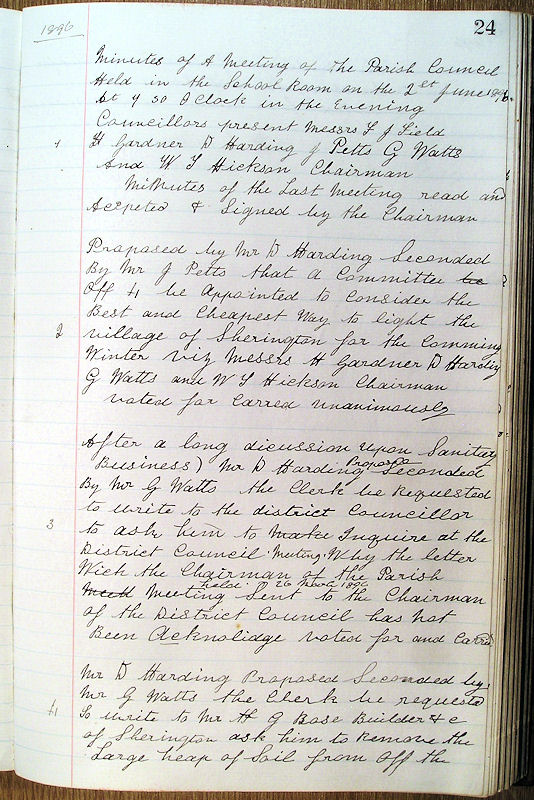 1896
24
Minutes of A Meeting of The Parish Council
Held in the School Room on the 2st June 1896.
At 7 30 OClock in the Evening
Councillors present Messrs L J Field
1
H Gardner D Harding J Petts G Watts
And W S Hickson Chairman
Minutes of the Last Meeting read and
Accpeted & Signed by the Chairman
Proposed by Mr D Harding Seconded
By Mr J Petts that a Committee be
Off 4 be appointed to Consider the
Best and Cheapest Way to light the
2
village of Sherington for the Comming
Winter viz Messrs H Gardner D Harding
G Watts and W S Hickson Chairman
voted for Carred unanimously
After a long dicussion upon Sanitary
Business) Mr D Harding Proposed Seconded
By Mr G Watts the Clerk be Requested
to write to the district Councillor
3
to ask him to make Inquire at the
District Council Meeting. Why the letter
Wich the Chairman of the Parish
Meeting held 26 1896 Sent to the Chairman
of the District Council has not
Been Acknolidge voted for and Carred
Mr D Harding Proposed Seconded by
Mr G Watts the Clerk be requested
4
To write to Mr H G Base Builder & c
of Sherington ask him to Remove the
Large heap of Soil from Off the